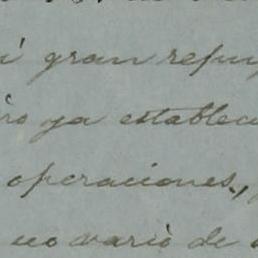 gran refu
ya establec
operaciones,
no varió de